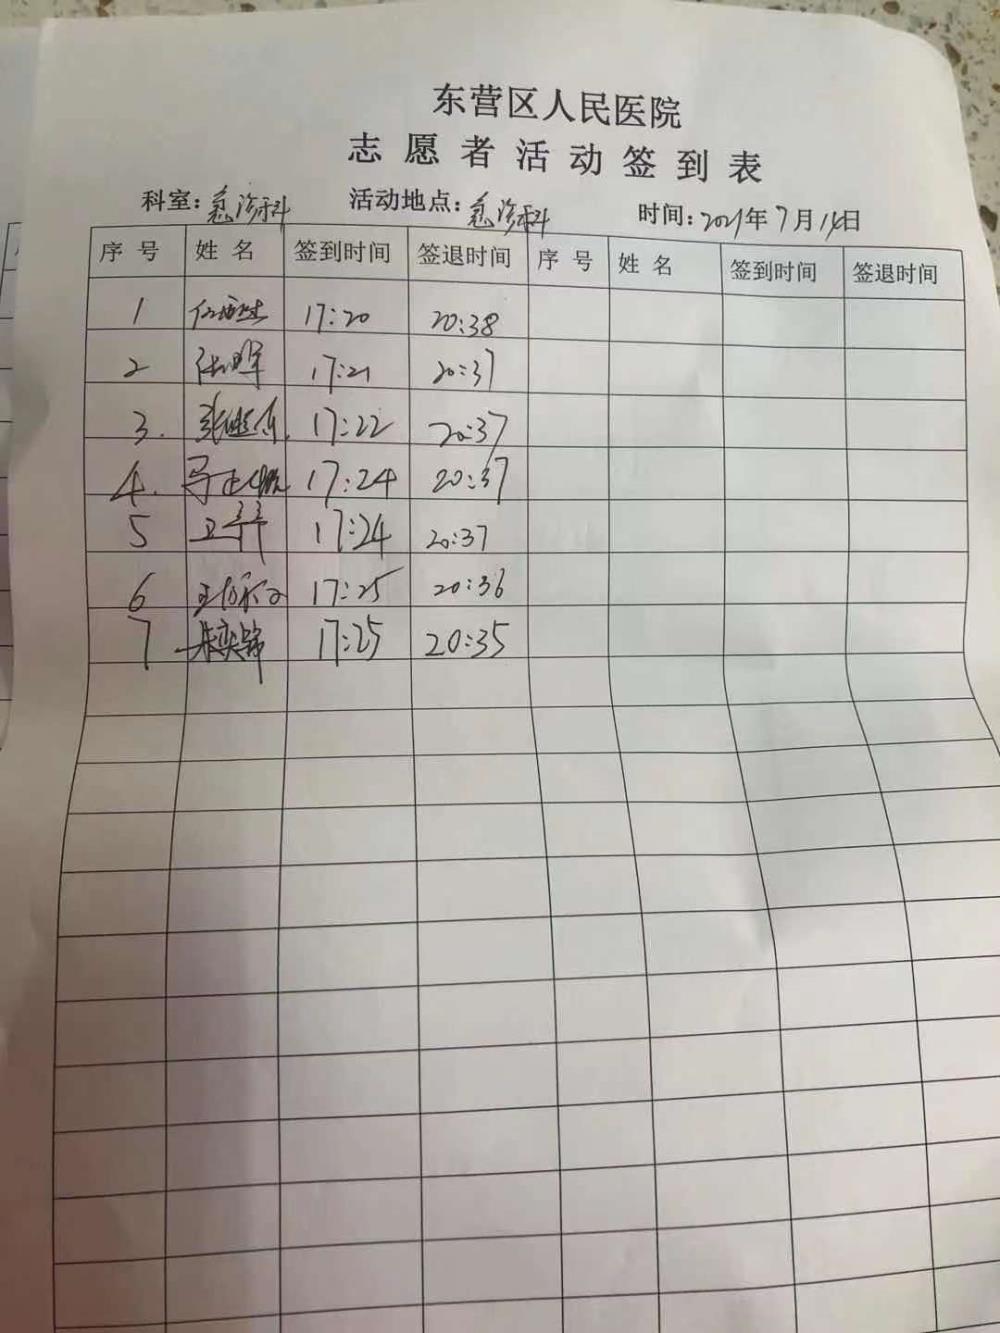 东营区人民医院
志愿者活动签到表
科室：急诊科 活动地点：急诊科 时间：2021年7月14日
序号 姓名 签到时间 签退时间 序号 姓名 签到时间 签退时间
1 17:20 20:38
2 17:21 20:37
3. 张 17:22 20:37
4. 17:24 20:37
5 卫 17:24 20:37
6 王 17:25 20:36
7 朱奕锦 17:25 20:35